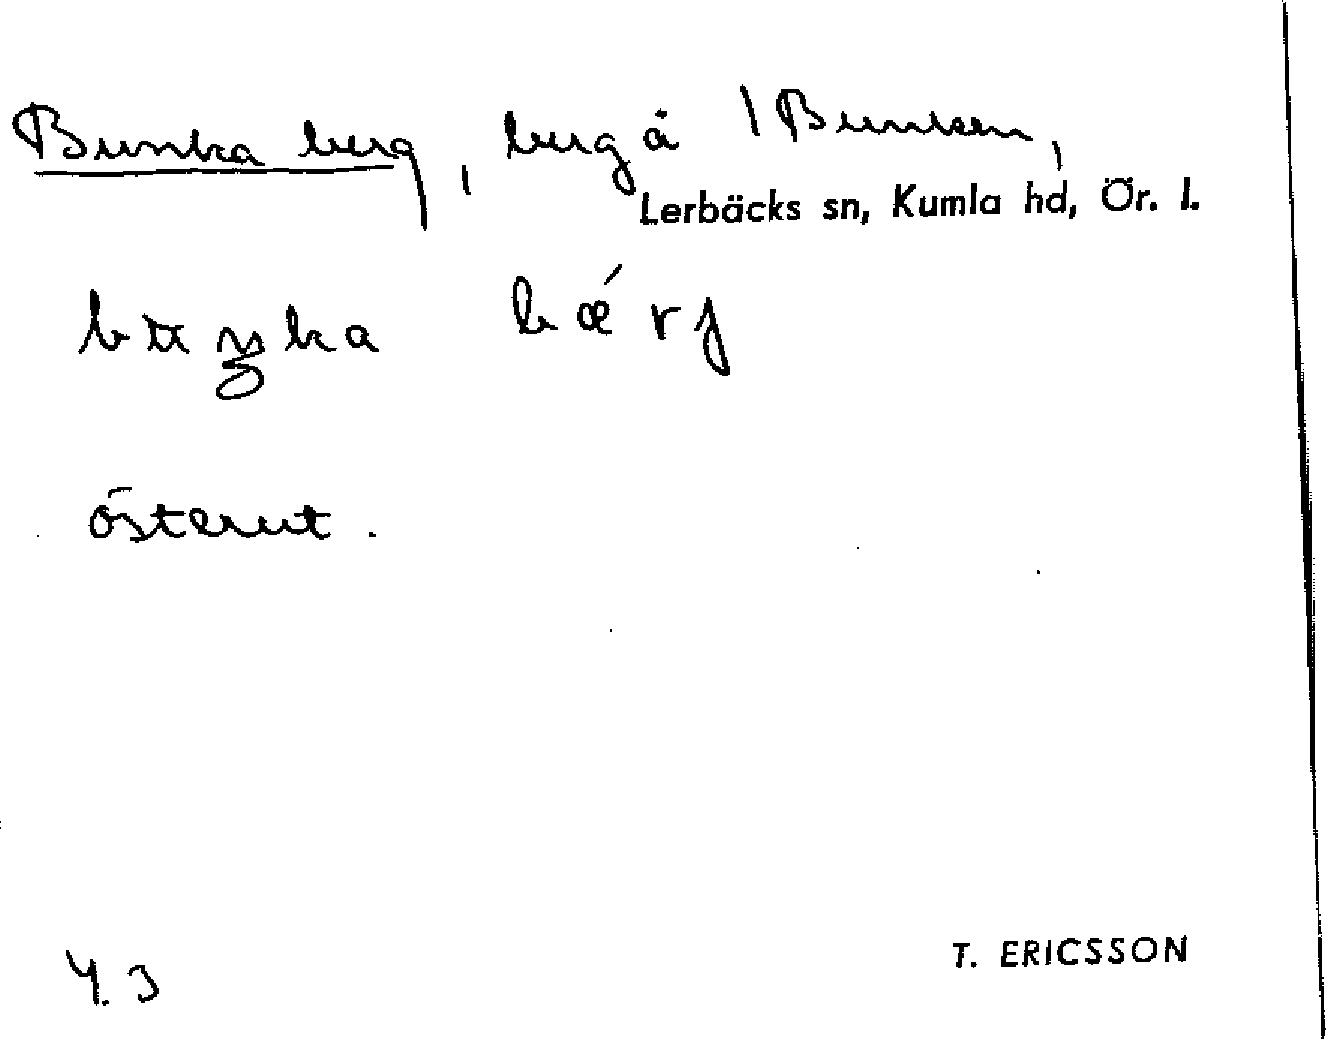 Bunka berg, berg å \Bunken,
Lerbäcks sn, Kumla hd, Ör. l.
bŋka bǽrj
österut.
4.3
T. ERICSSON